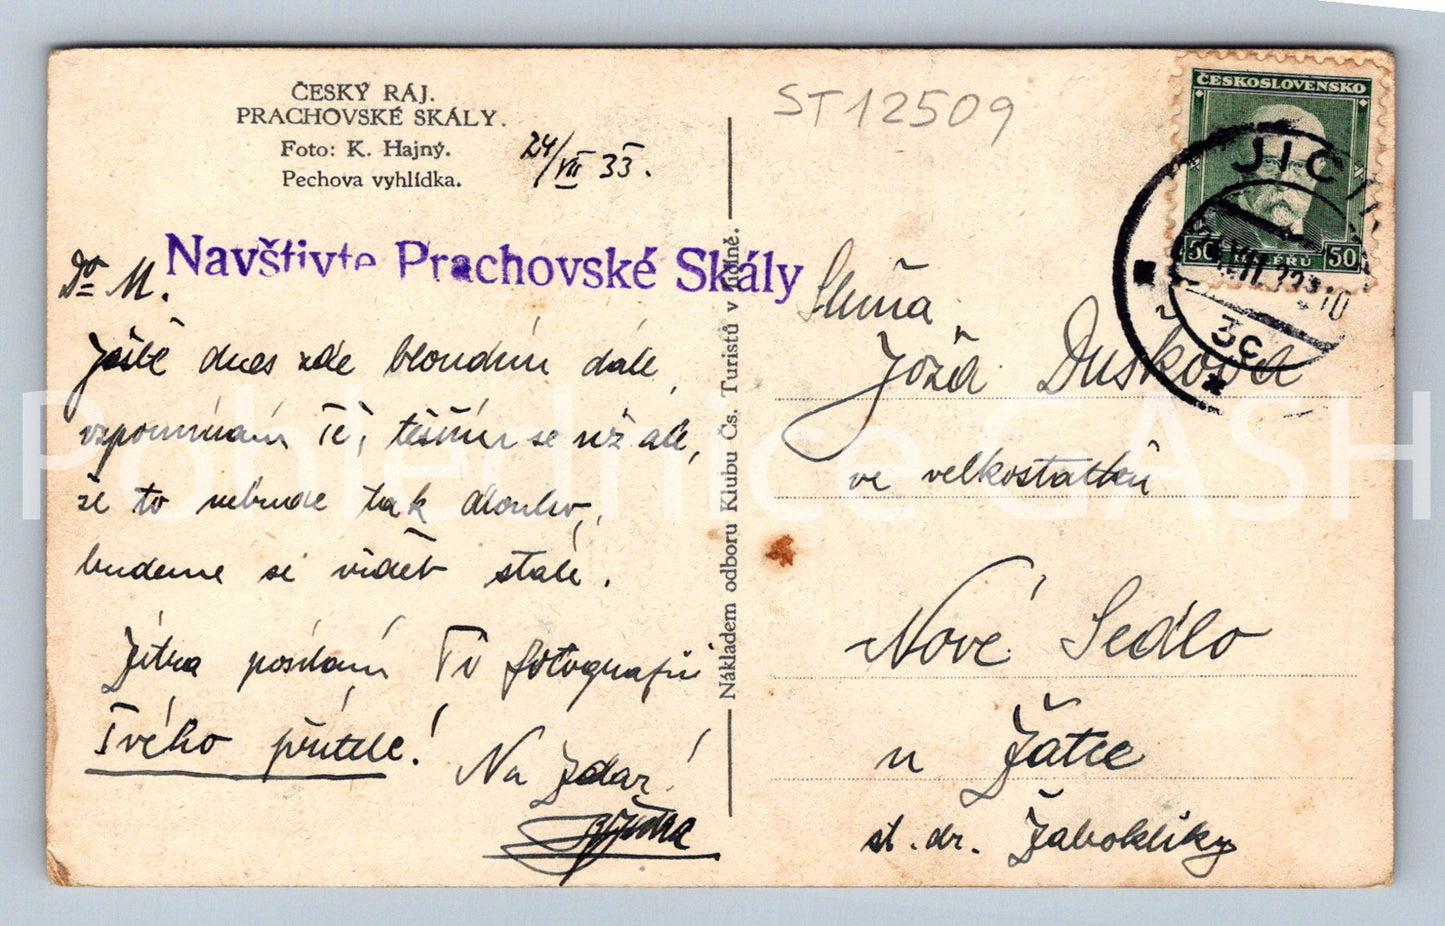 ČESKÝ RÁJ.
PRACHOVSKÉ SKÁLY.
Foto: K. Hajný.
Pechova vyhlídka.
24/VII 33.
ST12509
Navštivte Prachovské Skály
M.
Ještě dnes zde bloudím dále,
vzpomínám Tě, těším se již ale,
že to nebude tak dlouho,
budeme si vidět stále.
Jitra posílám Ti fotografii
Tvého přítele!
Na Zdar!
Jitra
Nákladem odboru Klubu Čs. Turistů v Jičíně.
ČESKOSLOVENSKO
50 HALÉŘŮ 50
JIČÍN
3c
Slečna
Joža Dušková
ve velkostatku
Nové Sedlo
u Žatce
st. dr. Žabokliky
Pohlednice GASH